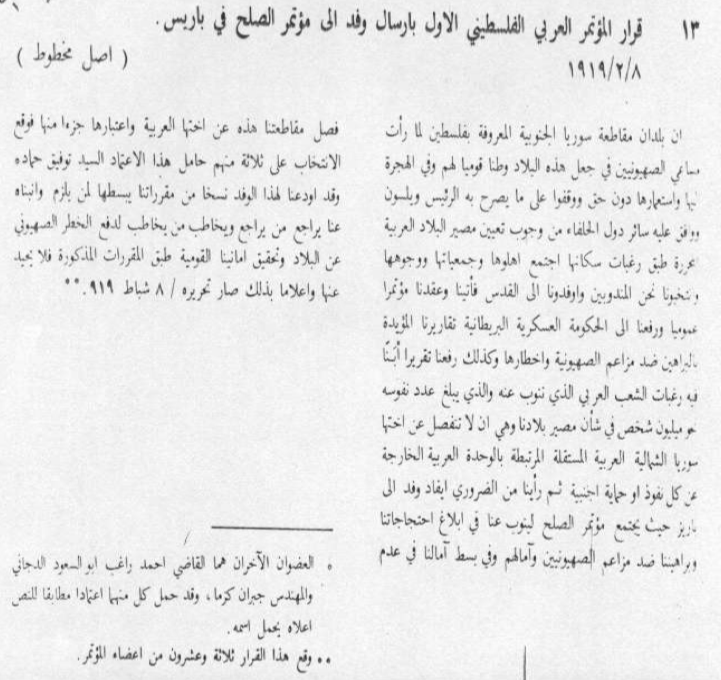 ١٣ قرار المؤتمر العربي الفلسطيني الاول بارسال وفد الى مؤتمر الصلح في باريس.
١٩١٩/٢/٨
( اصل مخطوط )
ان بلدان مقاطعة سوريا الجنوبية المعروفة بفلسطين لما رأت
مساعي الصهيونيين في جعل هذه البلاد وطنا قوميا لهم وفي الهجرة
اليها واستعمارها دون حق ووقفوا على ما يصرح به الرئيس ويلسون
ووافق عليه سائر دول الحلفاء من وجوب تعيين مصير البلاد العربية
المحررة طبق رغبات سكانها اجتمع اهلوها وجمعياتها ووجوهها
وانتخبونا نحن المندوبين واوفدونا الى القدس فأتينا وعقدنا مؤتمرا
عموميا ورفعنا الى الحكومة العسكرية البريطانية تقاريرنا المؤيدة
بالبراهين ضد مزاعم الصهيونية واخطارها وكذلك رفعنا تقريرا أبَنّا
فيه رغبات الشعب العربي الذي ننوب عنه والذي يبلغ عدد نفوسه
نحو ميليون شخص في شأن مصير بلادنا وهي ان لا تنفصل عن اختها
سوريا الشمالية العربية المستقلة المرتبطة بالوحدة العربية الخارجة
عن كل نفوذ او حماية اجنبية ثم رأينا من الضروري ايفاد وفد الى
باريز حيث يجتمع مؤتمر الصلح لينوب عنا في ابلاغ احتجاجاتنا
وبراهيننا ضد مزاعم الصهيونيين وآمالهم وفي بسط آمالنا في عدم
فصل مقاطعتنا هذه عن اختها العربية واعتبارها جزءا منها فوقع
الانتخاب على ثلاثة منهم حامل هذا الاعتماد السيد توفيق حماده
وقد اودعنا لهذا الوفد نسخا من مقرراتنا يبسطها لمن يلزم وانبناه
عنا يراجع من يراجع ويخاطب من يخاطب لدفع الخطر الصهيوني
عن البلاد وتحقيق امانينا القومية طبق المقررات المذكورة فلا يحيد
عنها واعلاما بذلك صار تحريره / ٨ شباط ٩١٩.**
* العضوان الآخران هما القاضي احمد راغب ابو السعود الدجاني
والمهندس جبران كزما، وقد حمل كل منهما اعتمادا مطابقا للنص
اعلاه يحمل اسمه.
** وقع هذا القرار ثلاثة وعشرون من اعضاء المؤتمر.